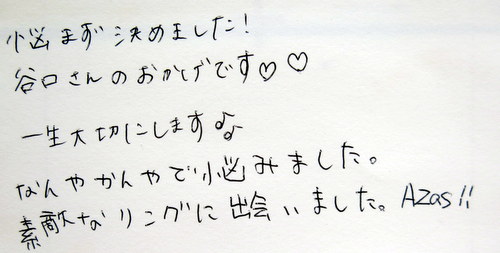 小悩まず決めました!
谷口さんのおかげです♡♡
一生大切にします♪♪
なんやかんやで小悩みました。
素敵なリングに出会いました。Azas!!